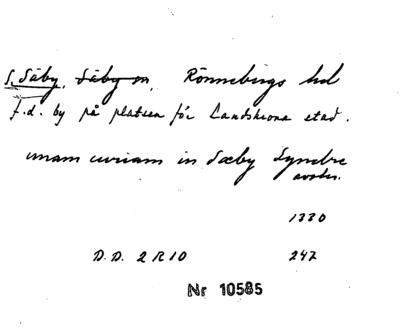 S. Säby, Säby sn, Rönnebergs hd
f.d. by på platsen för Landskrona stad.
unam curiam in Sæby Syndre
1330
D.D. 2 R 10 247
Nr 10585